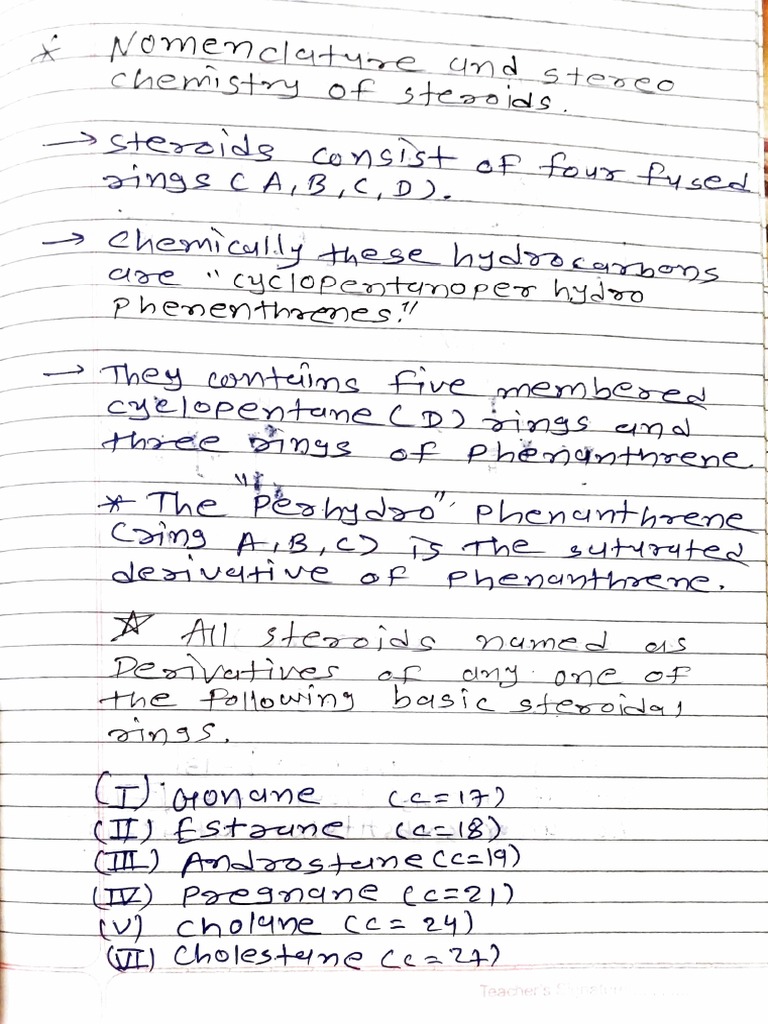 * Nomenclature and stereo
chemistry of steroids.
→ steroids consist of four fused
rings (A, B, C, D).
→ Chemically these hydrocarbons
are "cyclopentanoper hydro
phenenthrenes."
→ They contains five membered
cyclopentane (D) rings and
three rings of phenanthrene.
* The "Perhydro" phenanthrene
(ring A, B, C) is the saturated
derivative of phenanthrene.
☆ All steroids named as
Derivatives of any one of
the following basic steroidal
rings.
(I) Gonane (c=17)
(II) Estrane (c=18)
(III) Androstane (c=19)
(IV) Pregnane (c=21)
(V) Cholane (c=24)
(VI) Cholestane (c=27)
Teacher's